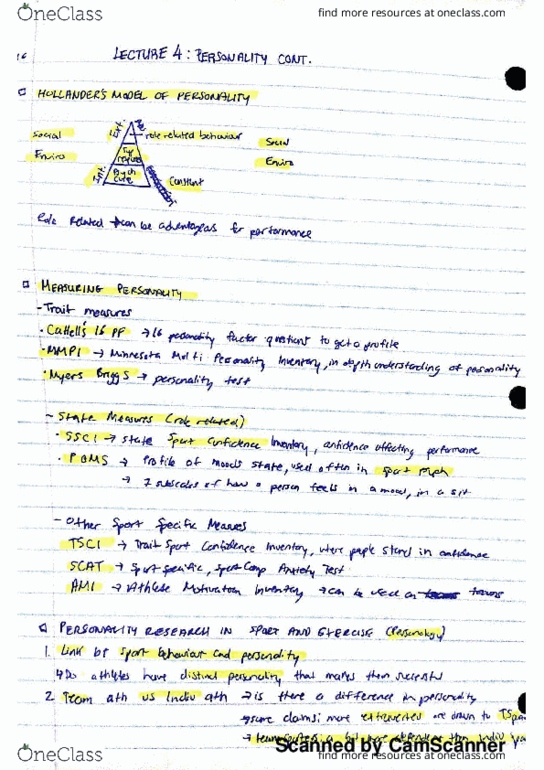 OneClass
find more resources at oneclass.com
16
LECTURE 4: PERSONALITY CONT.
HOLLANDER'S MODEL OF PERSONALITY
Social
Enviro
Ext.
Int.
role related behaviour
Typ
Psych
Core
Constant
Social
Enviro
Role Related → can be advantageous for performance
MEASURING PERSONALITY
- Trait measures
• Cattell's 16 PF → 16 personality factor questions to get a profile
• MMPI → Minnesota Multi Personality Inventory, in depth understanding of personality
• Myers Briggs → personality test
- State Measures (role related)
• SSCI → State Sport Confidence Inventory, confidence affecting performance
• POMS → Profile of moods state, used often in sport psych
→ 7 subscales of how a person feels in a mood, in a sit
- Other Sport Specific Measures
TSCI → Trait Sport Confidence Inventory, where people stand in confidence
SCAT → Sport specific, Sport Comp Anxiety Test
AMI → Athlete Motivation Inventory → can be used on teams
PERSONALITY RESEARCH IN SPORT AND EXERCISE (Personology)
1. Link bt sport behaviour and personality
↳ Do athletes have distinct personality that makes them successful
2. Team ath vs Indiv ath → is there a difference in personality
→ some claims: more extraverted are drawn to TSpo
→ team
Scanned by CamScanner
OneClass
find more resources at oneclass.com